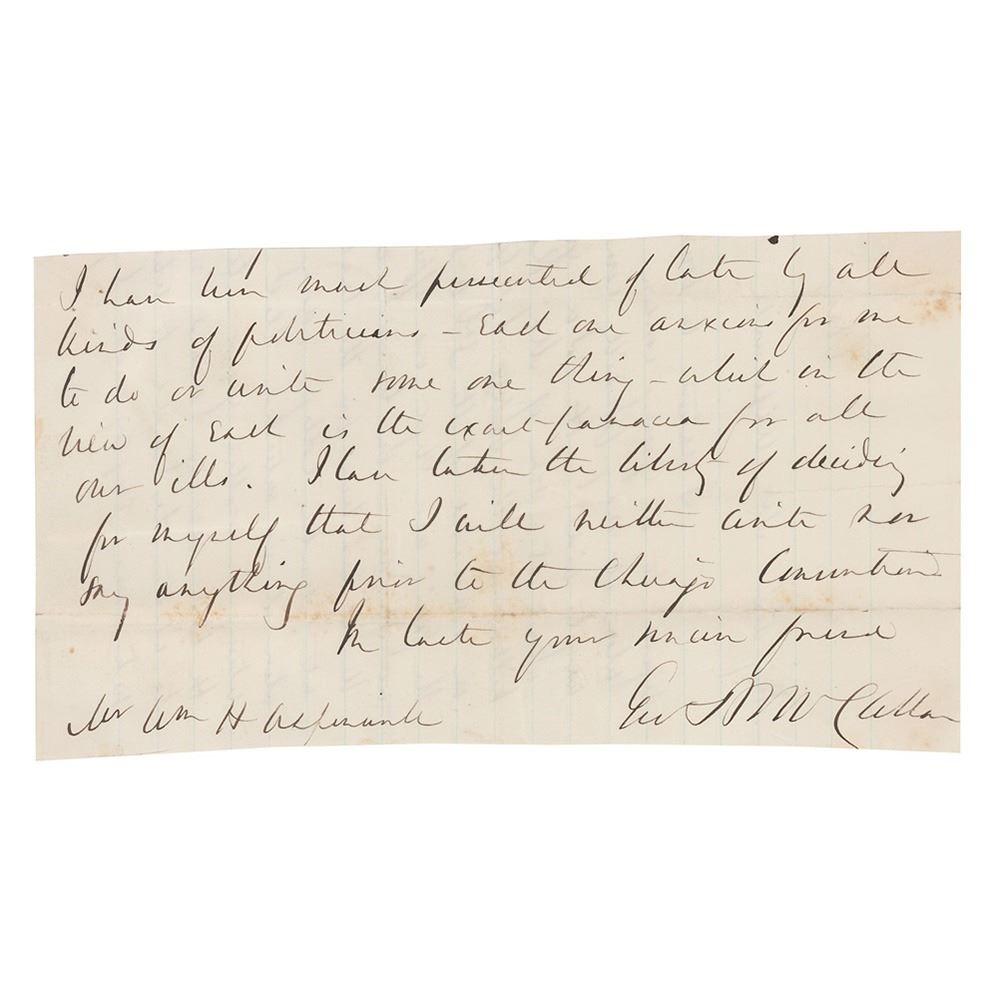 I have been much persecuted of late by all
kinds of politicians - Each one anxious for me
to do or write some one thing - which in the
view of each is the exact panacea for all
our ills. I have taken the liberty of deciding
for myself that I will neither write nor
say anything prior to the Chicago Convention
In haste your sincere friend
Geo B McClellan
Mr Wm H Aspinwall